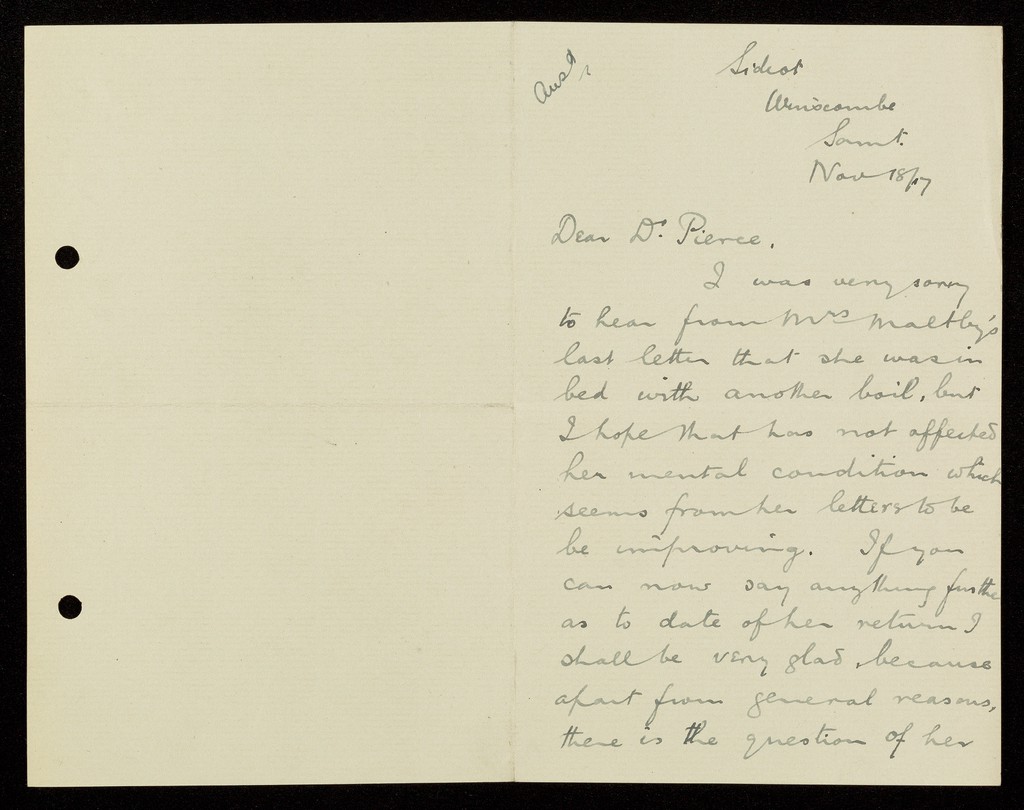 Ansd
Sidcot
Winscombe
Somt.
Nov 18/17
Dear Dr. Pierce,
I was very sorry
to hear from Mrs Maltby's
last letter that she was in
bed with another boil, but
I hope that has not affected
her mental condition which
seems from her letters to be
be improving. If you
can now say anything further
as to date of her return I
shall be very glad, because
apart from general reasons,
there is the question of her